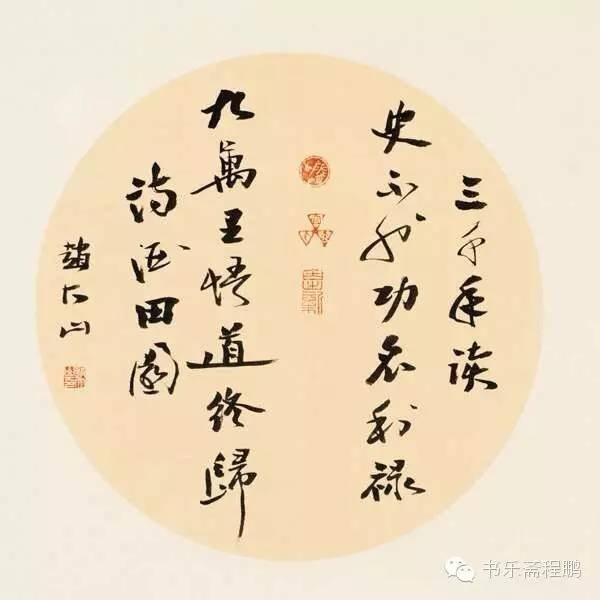 三千年读
史不外功名利禄
九萬里悟道终歸
诗酒田園
趙 山
书乐斋程鹏